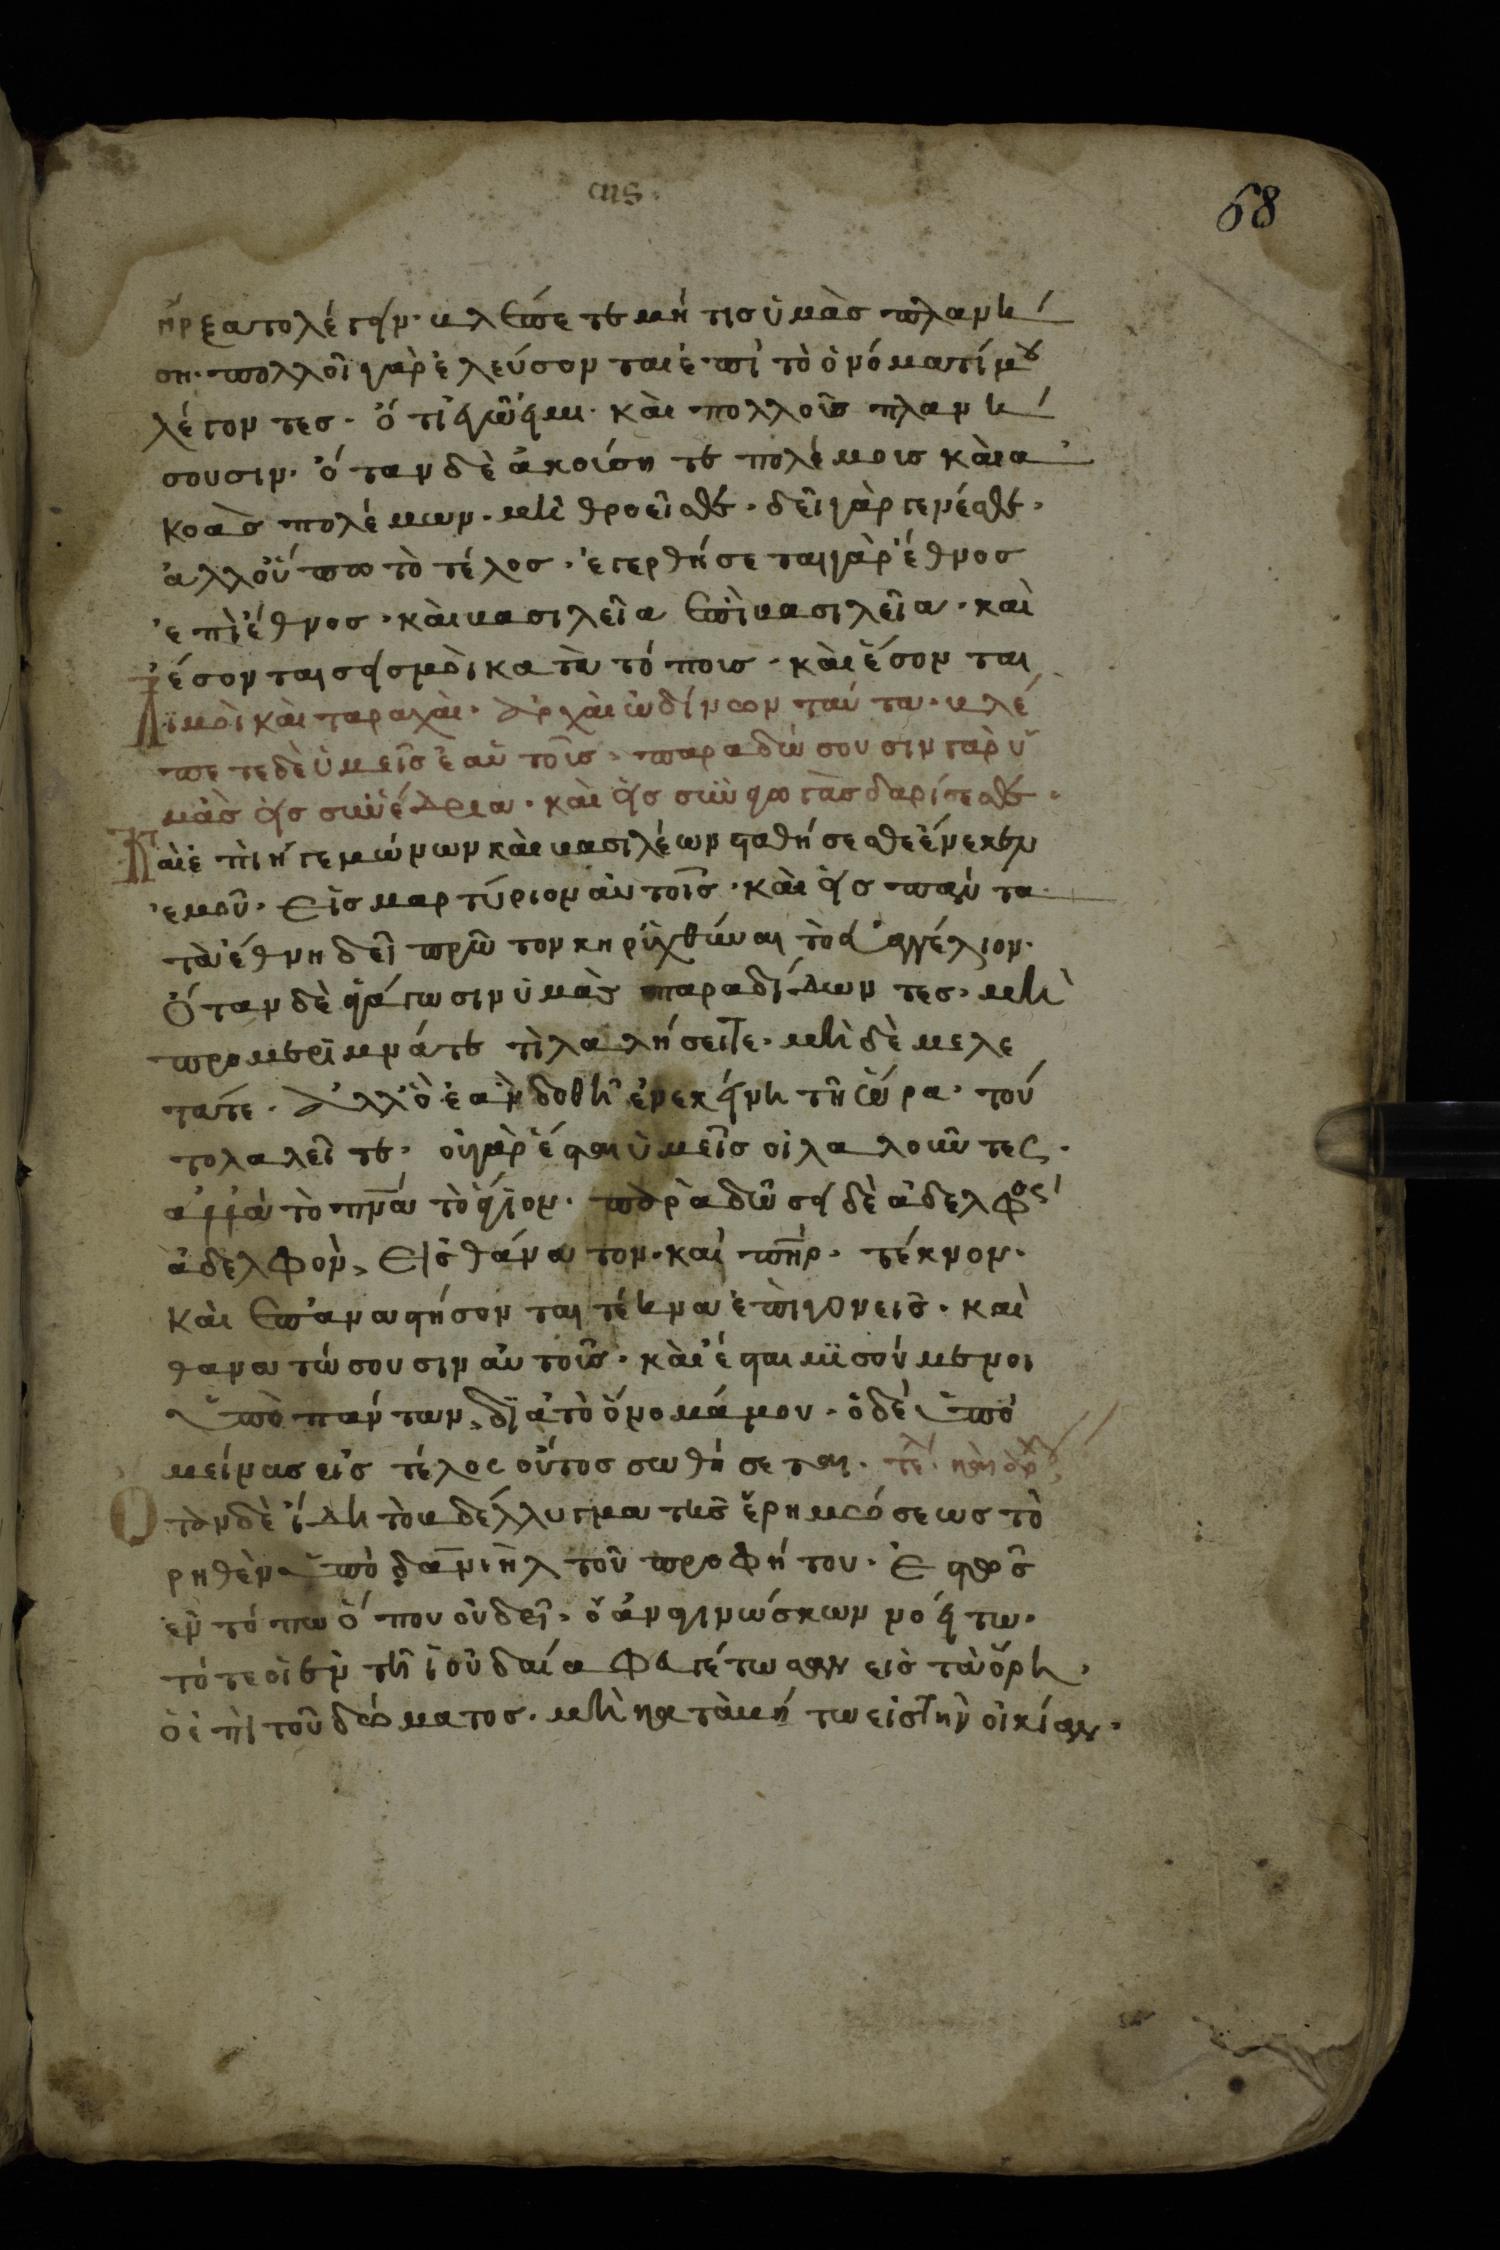 68
ἤρξατο λέγειν· βλέπετε μή τις ὑμὰς πλανή
ση· πολλοῖ γὰρ ἐλεύσονται ἐπὶ τὸ ὀνόματί μου
λέγοντες· ὅτι ἐγῶ εἰμι· κὰι πολλοῖς πλανή
σουσιν· ὅταν δὲ ἀκοίσητε πολέμοις κὰι ἀ
κοὰς πολέμων· μὴ θροεῖσθε· δεῖ γὰρ γενέσθε·
ἀλλ οὔπω τὸ τέλος· ἐγερθήσεται γὰρ ἔθνος
ἐπὶ ἔθνος· κὰι βασιλεῖα ἐπὶ βασιλεῖα· καὶ
ἔσονται σεισμοὶ κατὰ τόποις· κὰι ἔσονται
λιμοὶ κὰι ταραχὰι· ἀρχὰι ὠδίνων ταύτα· βλέ
πετε δὲ ὑμεῖς ἑαὐτοῖς· παραδώσουσιν γὰρ ὑ
μὰς εἰς συνέδρια· κὰι εἰς συναγωγὰς δαρίσεσθε·
Κὰι ἐπὶ ἡγεμώνων κὰι βασιλέων σαθήσεσθε ἕνεκεν
ἐμοῦ· εἰς μαρτύριον αὐτοῖς· κὰι εἰς πάντα
τὰ ἔθνη δεῖ πρῶτον κηριχθύναι τὸ εὐαγγέλιον·
Ὅταν δὲ ἀγάγωσιν ὑμὰς παραδίδωντες· μὴ
προμεριμνάτε τὶ λαλήσειτε· μὴ δὲ μελε
τάτε· ἀλλ ὃ ἐὰν δοθῆ ἐν ἐκείνη τῆ ὥρα· τού
το λαλεῖτε· οὐ γὰρ ἔσται ὑμεῖς οἱ λαλοῦντες·
ἀλλὰ τὸ πνα τὸ ἅγιον· παραδῶσει δὲ ἀδελφὸς
ἀδελφὸν, εἰς θάνατον· καὶ πηρ· τέκνον·
κὰι ἐπαναστήσονται τέκνα ἐπὶ γονεις· καὶ
θανατώσουσιν αὐτοῖς· κὰι ἔσται μισούμενοι
ὑπὸ πάντων, διὰ τὸ ὄνομά μου· ὁ δὲ ὑπο
μείνας εἰς τέλος οὗτος σωθήσεται·
Ὅταν δὲ ἴδη τὸ βδέλλυγμα τῆς ἐρημώσεως τὸ
ρηθὲν ὑπὸ δανιηλ τοῦ προφήτου· ἑστὸς
ἐν τόπω ὅπου οὐ δεῖ· ὁ ἀναγινώσκων νοείτω·
τότε οἱ ἐν τῆ ἰουδαία φευγέτωσαν εἰς τὰ ὄρη·
ὁ ἐπὶ τοῦ δώματος· μὴ καταβήτω εἰς τὴν οἰκίαν·